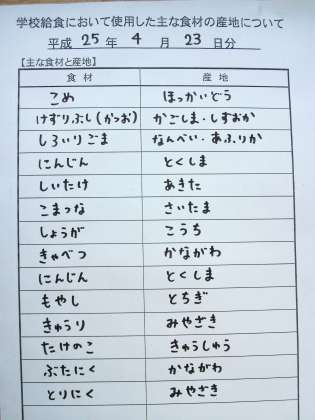 学校給食において使用した主な食材の産地について
平成 25 年 4 月 23 日分
【主な食材と産地】
食材 産地
こめ ほっかいどう
けずりぶし(かつお) かごしま・しずおか
しろいりごま なんべい・あふりか
にんじん とくしま
しいたけ あきた
こまつな さいたま
しょうが こうち
きゃべつ かながわ
にんじん とくしま
もやし とちぎ
きゅうり みやざき
たけのこ きゅうしゅう
ぶたにく かながわ
とりにく みやざき